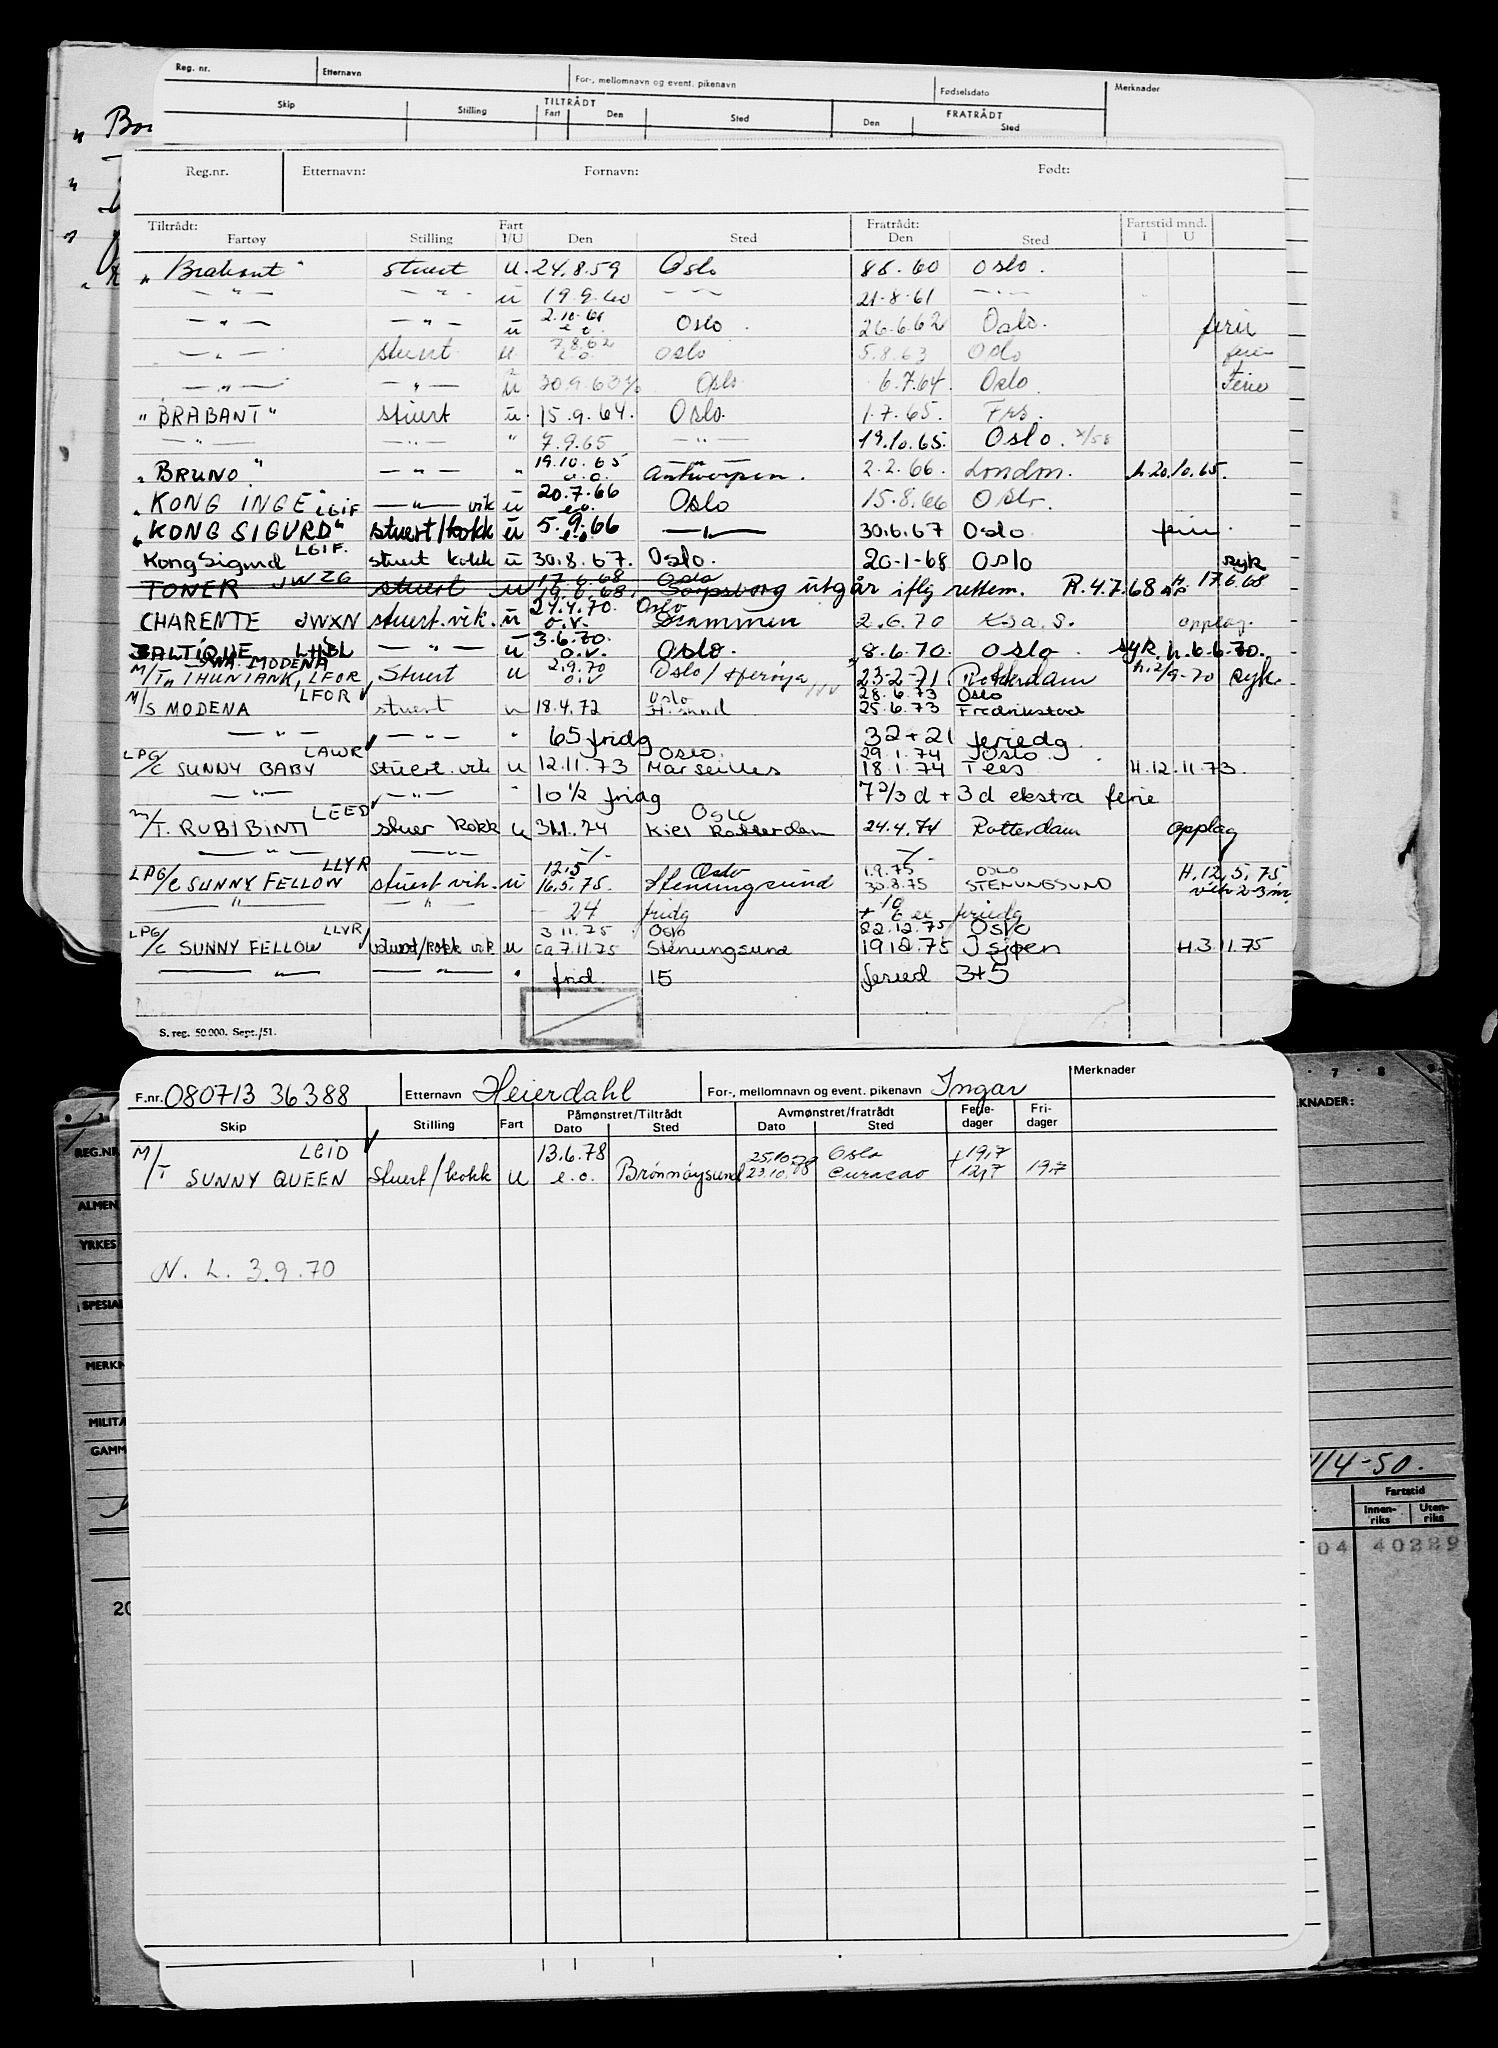 Reg. nr. Etternavn For-, mellomnavn og event. pikenavn Fødselsdato Merknader
TILTRÅDT FRATRÅDT
Skip Stilling Fart Den Sted Den Sted
Reg.nr. Etternavn: Fornavn: Født:
Tiltrådt: Fart Fratrådt: Fartstid mnd.
Fartøy Stilling I/U Den Sted Den Sted I U
„ Brabant " stuert u. 24.8.59 Oslo 8.8.60 Oslo.
— " — — " — u 19.9.60 — " — 21.8.61 — " —
— " — — " — u 2.10.61 e.o. Oslo. 26.6.62 Oslo. ferie
— " — stuert u 7.8.62 e.o. Oslo 5.8.63 Oslo ferie
— " — — " — u 30.9.63 Oslo 6.7.64. Oslo. Ferie
" BRABANT " stuert u. 15.9.64. Oslo. 1.7.65. Frs.
— " — — " — " 7.9.65 — " — 19.10.65. Oslo.
„ BRUNO " — " — " 19.10.65 o.o. Antwerpen. 2.2.66. London. h. 20.10.65.
„ KONG INGE " LGIF — " — vik u 20.7.66 e.o. Oslo 15.8.66 Oslo.
„ KONG SIGURD " stuert/kokk u 5.9.66 e.o. — " — 30.6.67 Oslo ferie.
LGIF.
Kong Sigurd stuert kokk u 30.8.67. Oslo. 20-1-68 Oslo syk
17.6.68 Oslo
TONER JWZG stuert u 16.6.68. Sarpsborg utgår iflg rettem. R.4.7.68 H. 17.6.68
24.4.70. Oslo
CHARENTE JWXN stuert. vik. u o.v. Drammen 2.6.70 K.s.a.S. opplag.
3.6.70.
BALTIQUE LHBL — " — u o.v. Oslo. 8.6.70. Oslo. syk. h. 6.6.70.
MODENA
M/T THUNTANK, LFOR Stuert u 2.9.70 o.v Oslo/Herøya 23-2-71 Rotterdam h. 2/9-70 syk.
LFOR Oslo 28.6.73 Oslo
M/S MODENA stuert u 18.4.72 25.6.73 Fredrikstad
— " — — " — " 65 fridg 32 + 21 feriedg.
LAWR Oslo. 29.1.74 Oslo
LPG/C SUNNY BABY stuert. vik u 12.11.73 Marseilles 18.1.74 Tees H.12.11.73.
— " — — " — " 10 1/2 fridg 7 2/3 d + 3 d ekstra ferie
LEED Oslo
M/T. RUBI BINTI stuer kokk u 31.1.74 Kiel Rotterdam 24.4.74 Rotterdam opplag
— " — — " — -/- -/-
LLYR 12.5 Oslo 1.9.75 OSLO H.12.5.75
LPG/C SUNNY FELLOW stuert vik. u 16.5.75. Stenungsund 30.8.75 STENUNGSUND vik 2-3 m.
— " — — " — 24 fridg 10 + 6 feriedg
LLYR 3.11.75 Oslo 22.12.75 Oslo
LPG/C SUNNY FELLOW stuert/kokk vik u ca 7.11.75 Stenungsund 19.12.75 H.3.11.75
— " — — " — " frid 15 feried 3+5
S. reg. 50.000. Sept./51.
F.nr. 080713 36388 Etternavn Heierdahl For-, mellomnavn og event. pikenavn Ingar Merknader
Påmønstret/Tiltrådt Avmønstret/fratrådt Ferie- Fri-
Skip Stilling Fart Dato Sted Dato Sted dager dager
LEID 13.6.78 25.10.78 Oslo 19,7
M/T SUNNY QUEEN Stuert/kokk u e.o. Brønnøysund 23.10.78 Curacao + 12,7 19,7
N. L. 3.9.70
REG.NR
ALMEN
YRKES
SPESIAL
MERKN
MILITÆ
GAMM
20
7 8 9
KNADER:
1/4-50.
Fartstid
Innen-riks Uten-riks
04 40229